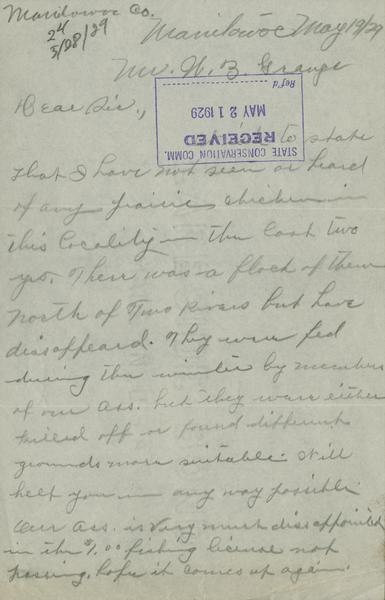 Manitowoc Co.
24
5/28/29
Manitowoc May 19/29
Mr. W. B. Grange
Dear Sir.,
STATE CONSERVATION COMM.
RECEIVED
MAY 21 1929
Ref'd
to state
that I have not seen or heard
of any prairie chicken in
this locality in the last two
yrs. There was a flock of them
north of Two Rivers but have
disappeared. They were fed
during the winter by members
of our Ass. but they were either
killed off or found different
grounds more suitable. Will
help you in any way possible
Our Ass. is very much disappointed
in the $1.00 fishing license not
passing, hope it comes up again.